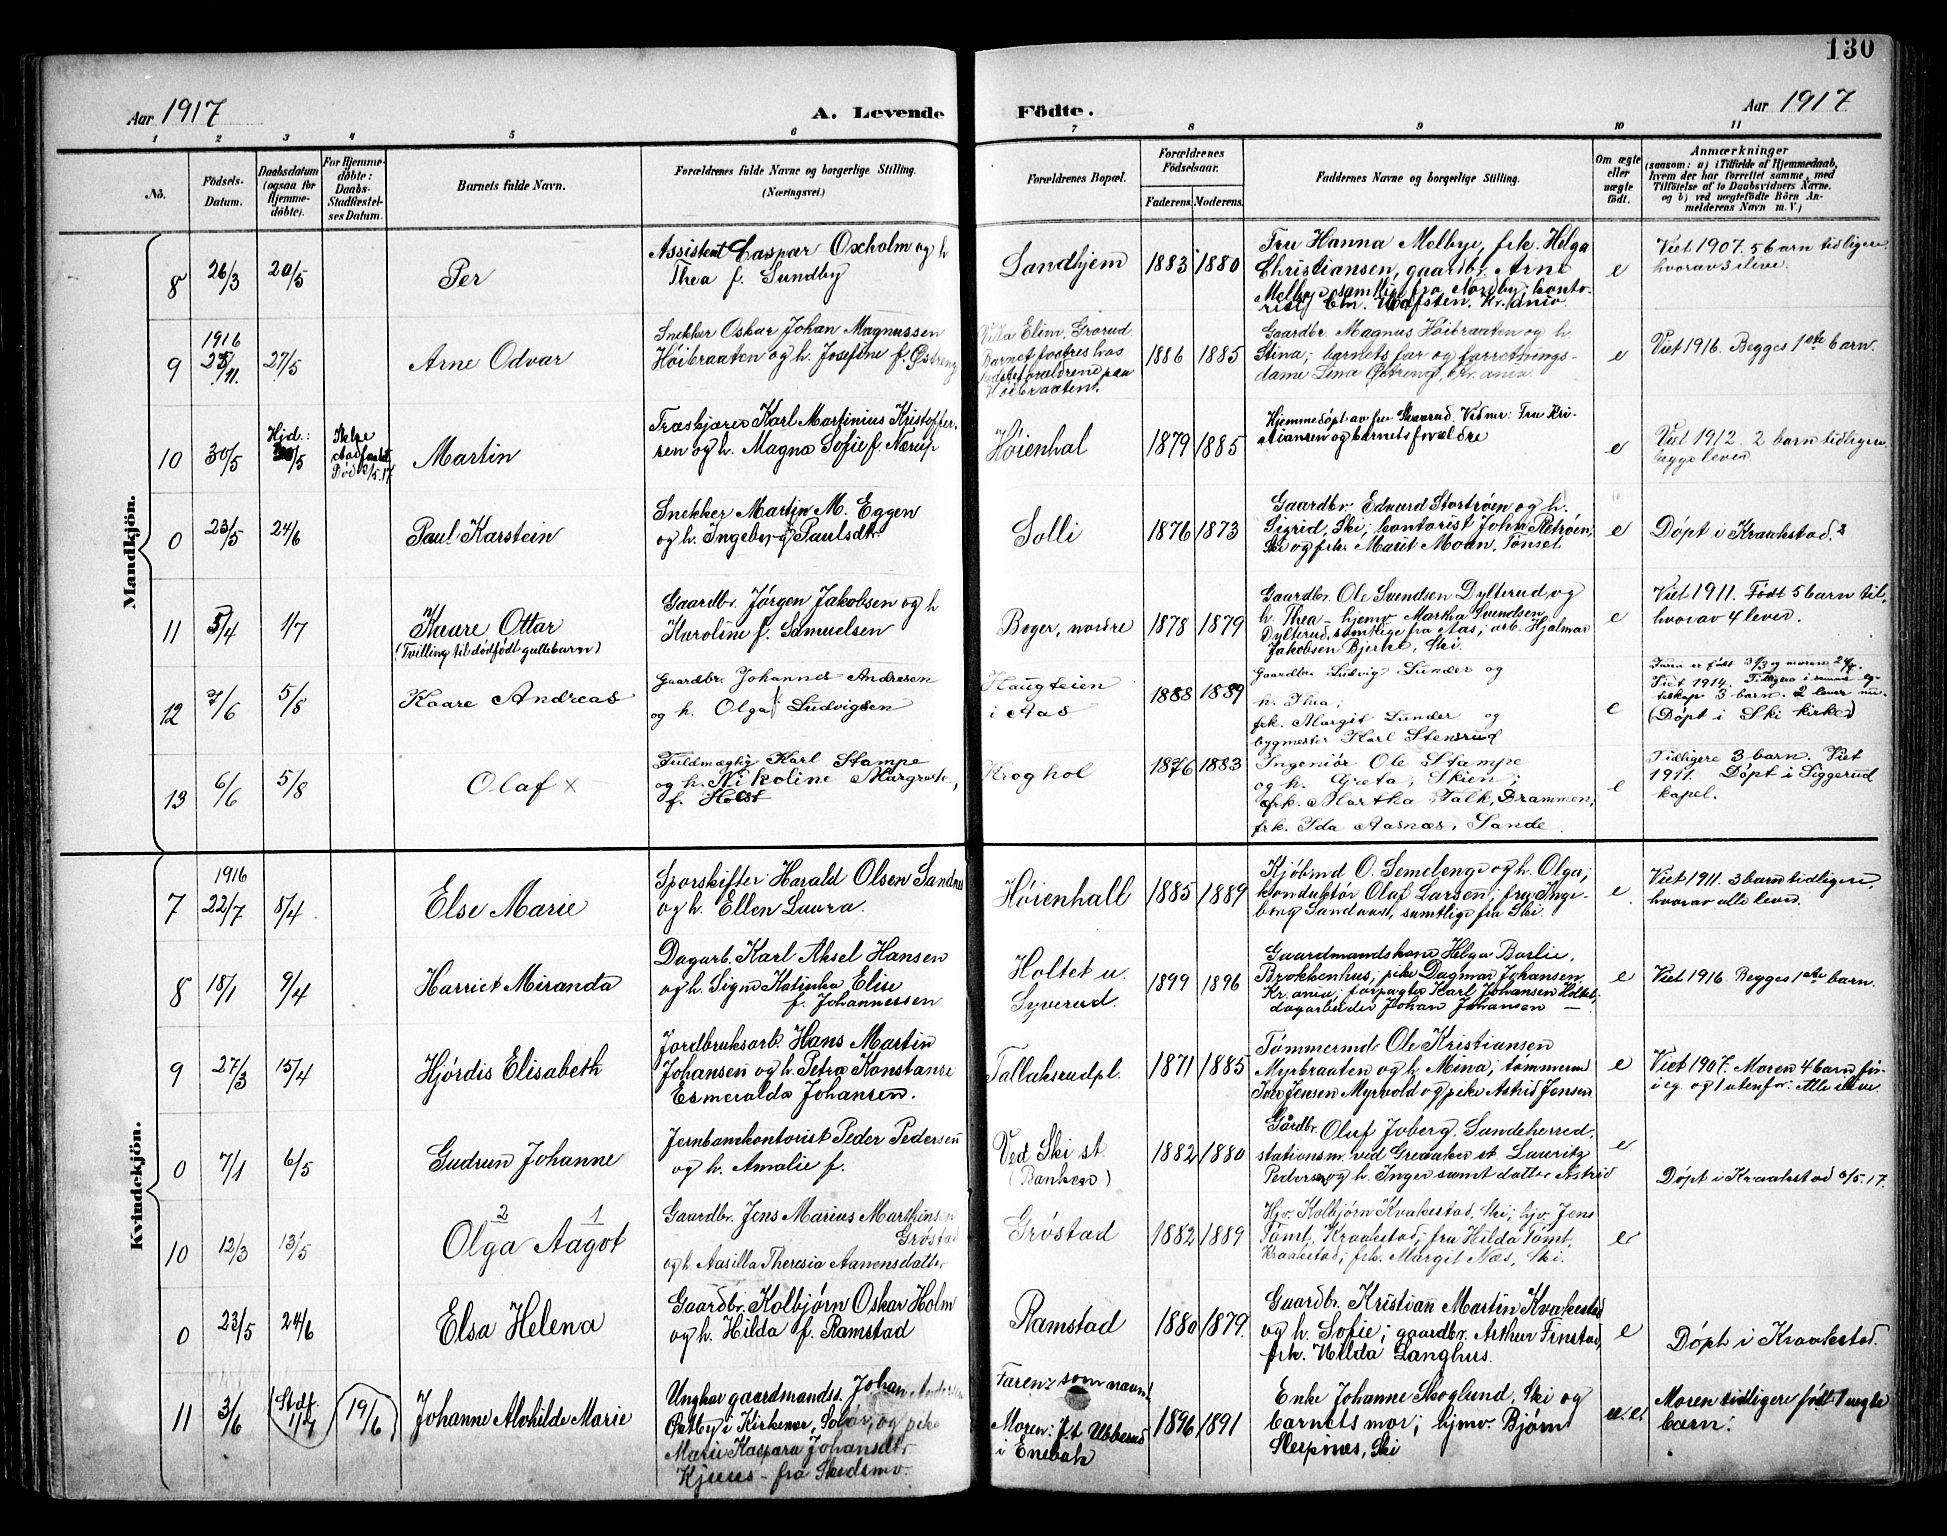 130
Aar 1917
A. Levende Födte.
Aar 1917
1 2 3 4 5 6 7 8 9 10 11
No.
Födsels-
Datum.
Daabsdatum
(ogsaa for
Hjemme-
döbte).
For Hjemme-
döbte:
Daabs-
Stadfæstel-
ses Datum.
Barnets fulde Navn.
Forældrenes fulde Navne og borgerlige Stilling.
(Næringsvei)
Forældrenes Bopæl.
Forældrenes
Födselsaar.
Faderens. Moderens.
Faddernes Navne og borgerlige Stilling.
Om ægte
eller
uægte
födt.
Anmærkninger
(saasom: a) i Tilfælde af Hjemmedaab,
hvem der har forrettet samme, med
Tilföielse af to Daabsvidners Navne.
og b) ved uægtefödte Börn An-
melderens Navn m. V.)
Mandkjön.
8 26/3 20/5
Per
Assistent Caspar Oxholm og h
Thea f. Sundby
Sandhjem
1883 1880
Fru Hanna Melbye, frk. Helga
Christiansen, gaardbr. Arne
Melbye samtlige fra Nordby; konto-
rist Chr. Ulafsten, Kr.ania
e
Viet 1907. 5 barn tidligere
hvorav 3 ilive.
9 1916
25/11. 27/5
Arne Odvar
Snekker Oskar Johan Magnussen
Høibraaten og h. Josefine f. Østreng
Villa Elim, Grorud
Barnet fostres hos
bedsteforældrene paa
Høibraaten.
1886 1885
Gaardbr. Magnus Høibraaten og h.
Stina; barnets far og forretnings-
dame Lina Østreng, Kr.ania.
e
Viet 1916. Begges 1ste barn.
10 30/5
Hjd.:
30/5
Ikke
stadfæstet
Død
Martin
Karl Martinius Kristoffer-
sen og h. Magna Sofie f. Nærup
Høienhal
1879 1885
Hjemmedøpt av fru Skaarud. Vidner: Fru Kri-
stiansen og barnets forældre
e
Viet 1912. 2 barn tidligere
begge lever.
0 23/5 24/6
Paul Karstein
Snekker Martin M. Eggen
og h. Ingeborg Paulsdtr.
Solli
1876 1873
Gaardbr. Edvard Stortrøen og h.
Sigrid, Ski; kontorist John Røtrøen,
Ski og frk. Marit Moan, Tønset
e
Døpt i Kraakstad.
11 5/4 1/7
Kaare Ottar
(Tvilling til dødfødt guttebarn)
Gaardbr. Jørgen Jakobsen og h
Karoline f. Samuelsen
Boger, nordre
1878 1879
Gaardbr. Ole Svendsen Dylterud og
h. Thea - hjemv. Martha Svendsen
Dylterud, samtlige fra Aas; arb. Hjalmar
Jakobsen Bjerke, Ski.
e
Viet 1911. Født 5 barn til,
hvorav 4 lever.
12 7/6 5/8
Kaare Andreas
Gaardbr. Johannes Andresen
og h. Olga f Ludvigsen
Haugteien
i Aas
1888 1889
Gaardbr. Ludvig Sunder og
h. Thea;
frk. Margit Sunder og
bygmester Karl Stensrud
e
Faren er født 31/3 og moren 24/8.
Viet 1914. Tidligere i samme eg-
teskap 3 barn. 2 lever nu.
(Døpt i Ski kirke)
13 6/6 5/8
Olaf ×
Fuldmægtig Karl Stampe
og h. Nikoline Margrete,
f. Holst
Kroghol
1876 1883
Ingeniør Ole Stampe
og h. Greta, Skien;
frk. Martha Falk, Drammen,
frk. Ida Aasnæs, Sande.
e
Tidligere 3 barn. Viet
1911. Døpt i Siggerud
kapel.
Kvindekjön.
7 1916
22/7 8/4
Else Marie
Sporskifter Harald Olsen
og h. Ellen Laura.
Høienhall
1885 1889
Kjøbmd O. Semelenge og h. Olga,
konduktør Olaf Larsen, fru Inge-
borg Sandaas, samtlige fra Ski.
e.
Viet 1911. 3 barn tidligere,
hvorav alle lever.
8 18/1 9/4
Harriet Miranda
Dagarb. Karl Aksel Hansen
og h. Signe Katinka Elise
f. Johannessen
Holtet u.
Syverud.
1899 1896
Gaardmandskone Helga Barlie,
Brekkenhus; pike Dagmar Johansen
Kr.ania; forpagter Karl Johansen Holtet;
dagarbeider Johan Johansen —
e
Viet 1916. Begges 1ste barn.
9 27/3 15/4
Hjördis Elisabeth
Jordbruksarb. Hans Martin
Johansen og h. Petra Konstanse
Esmeralda Johansen.
Tallaksrudpl.
1871 1885
Tømmermd. Ole Kristiansen
Myrbraaten og h. Mina; tømmerm
Jensen Myrvold og pike Astrid Jensen
e
Viet 1907. Moren 4 barn før
i eg. og 1 utenfor. Alle ilive.
0 7/1 6/5
Gudrun Johanne
Jernbanekontorist Peder Pedersen
og h. Amalie f.
Ved Ski st.
(Banken)
1882 1880
Gårdbr. Oluf Joberg, Sandeherred,
stationsm. ved Greaaker st. Lauritz
Pedersen og h. Inger samt datter Astrid
e
Døpt i Kraakstad 6/5.17.
10 12/3 13/5
2 1
Olga Aagot
Gaardbr. Jens Marius Marthinsen
Grøstad
og h. Aasilla Theresia Aanensdatter
Grøstad
1882 1889
Hjv. Kolbjørn Kvakestad, Ski; hjv. Jens
Tømt, Kraakstad; fru Hilda Tømt,
Kraakstad; frk. Margit Næs, Ski.
e
0 23/5 24/6
Elsa Helena
Gaardbr. Kolbjørn Oskar Holm
og h. Hilda f. Ramstad
Ramstad
1880 1879.
Gaardbr. Kristian Martin Kvakestad
og h. Sofie; gaardbr. Arthur Finstad,
frk. Hilda Langhus.
e
Døpt i Kraakstad.
11 3/6
Stdf.
1/7
19/6
Johanne Alvhilde Marie
Ungkar gaardmandss. Johan Andersen
Østby i Kirkenær, Solør, og pike
Marie Kaspara Johansdtr
Kjuus - fra Skedsmo.
Faren: som navnet
Moren: p.t. Ubberud
i Enebak
1896 1891
Enke Johanne Skoglund, Ski og
barnets mor; hjmv. Bjørn
Sleipnes, Ski
Moren tidligere født 1 uegte
barn.